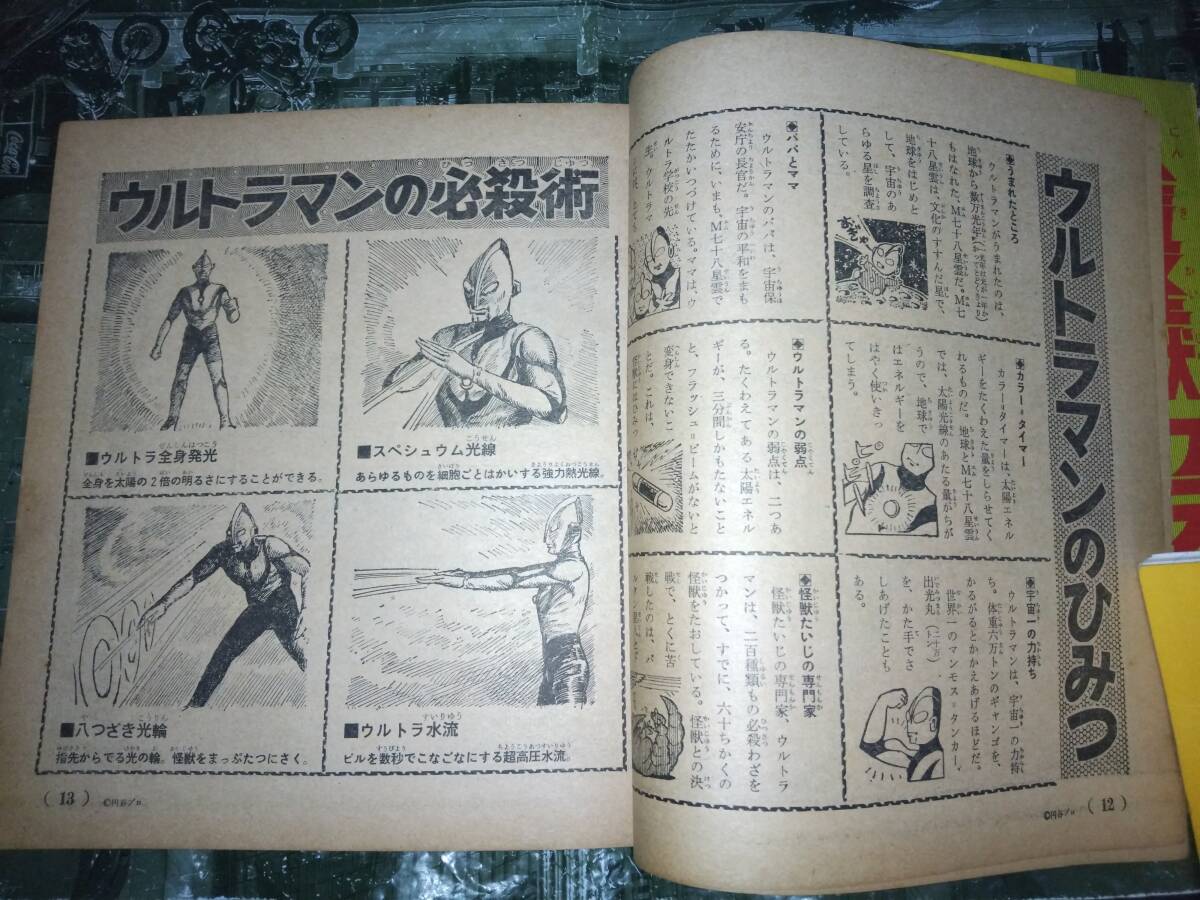 ウルトラマンのひみつ
◆うまれたところ
ウルトラマンがうまれたのは、
地球から数万光年
もはなれた、M七十八星雲だ。M七
十八星雲は、文化のすすんだ星で、
地球をはじめと
して、宇宙のあ
らゆる星を調査
している。
◆カラー=タイマー
カラー=タイマーは、太陽エネル
ギーをたくわえた量をしらせてく
れるものだ。地球とM七十八星雲
では、太陽光線のあたる量がちが
うので、地球で
はエネルギーを
はやく使いきっ
てしまう。
◆宇宙一の力持ち
ウルトラマンは、宇宙一の力持
ち。体重六万トンのギャンゴを、
かるがるとかかえあげるほどだ。
世界一のマンモス=タンカー、
出光丸
を、かた手でさ
しあげたことも
ある。
◆パパとママ
ウルトラマンのパパは、宇宙保
安庁の長官だ。宇宙の平和をまも
るために、いまも、M七十八星雲で
たたかいつづけている。ママは、ウ
ルトラ学校の先
生。ウルトラマ
◆ウルトラマンの弱点
ウルトラマンの弱点は、二つあ
る。たくわえてある太陽エネル
ギーが、三分間しかもたないこと
と、フラッシュ=ビームがないと
変身できないこ
とだ。これは、
◆怪獣たいじの専門家
怪獣たいじの専門家、ウルトラ
マンは、二百種類もの必殺わざを
つかって、すでに、六十ちかくの
怪獣をたおしている。怪獣との決
戦で、とくに苦
戦したのは、バ
©円谷プロ
(12)
ひっさつじゅつ
ウルトラマンの必殺術
■スペシュウム光線
あらゆるものを細胞ごとはかいする強力熱光線。
■ウルトラ全身発光
全身を太陽の2倍の明るさにすることができる。
■ウルトラ水流
ビルを数秒でこなごなにする超高圧水流。
■八つざき光輪
指先からでる光の輪。怪獣をまっぷたつにさく。
(13)
©円谷プロ